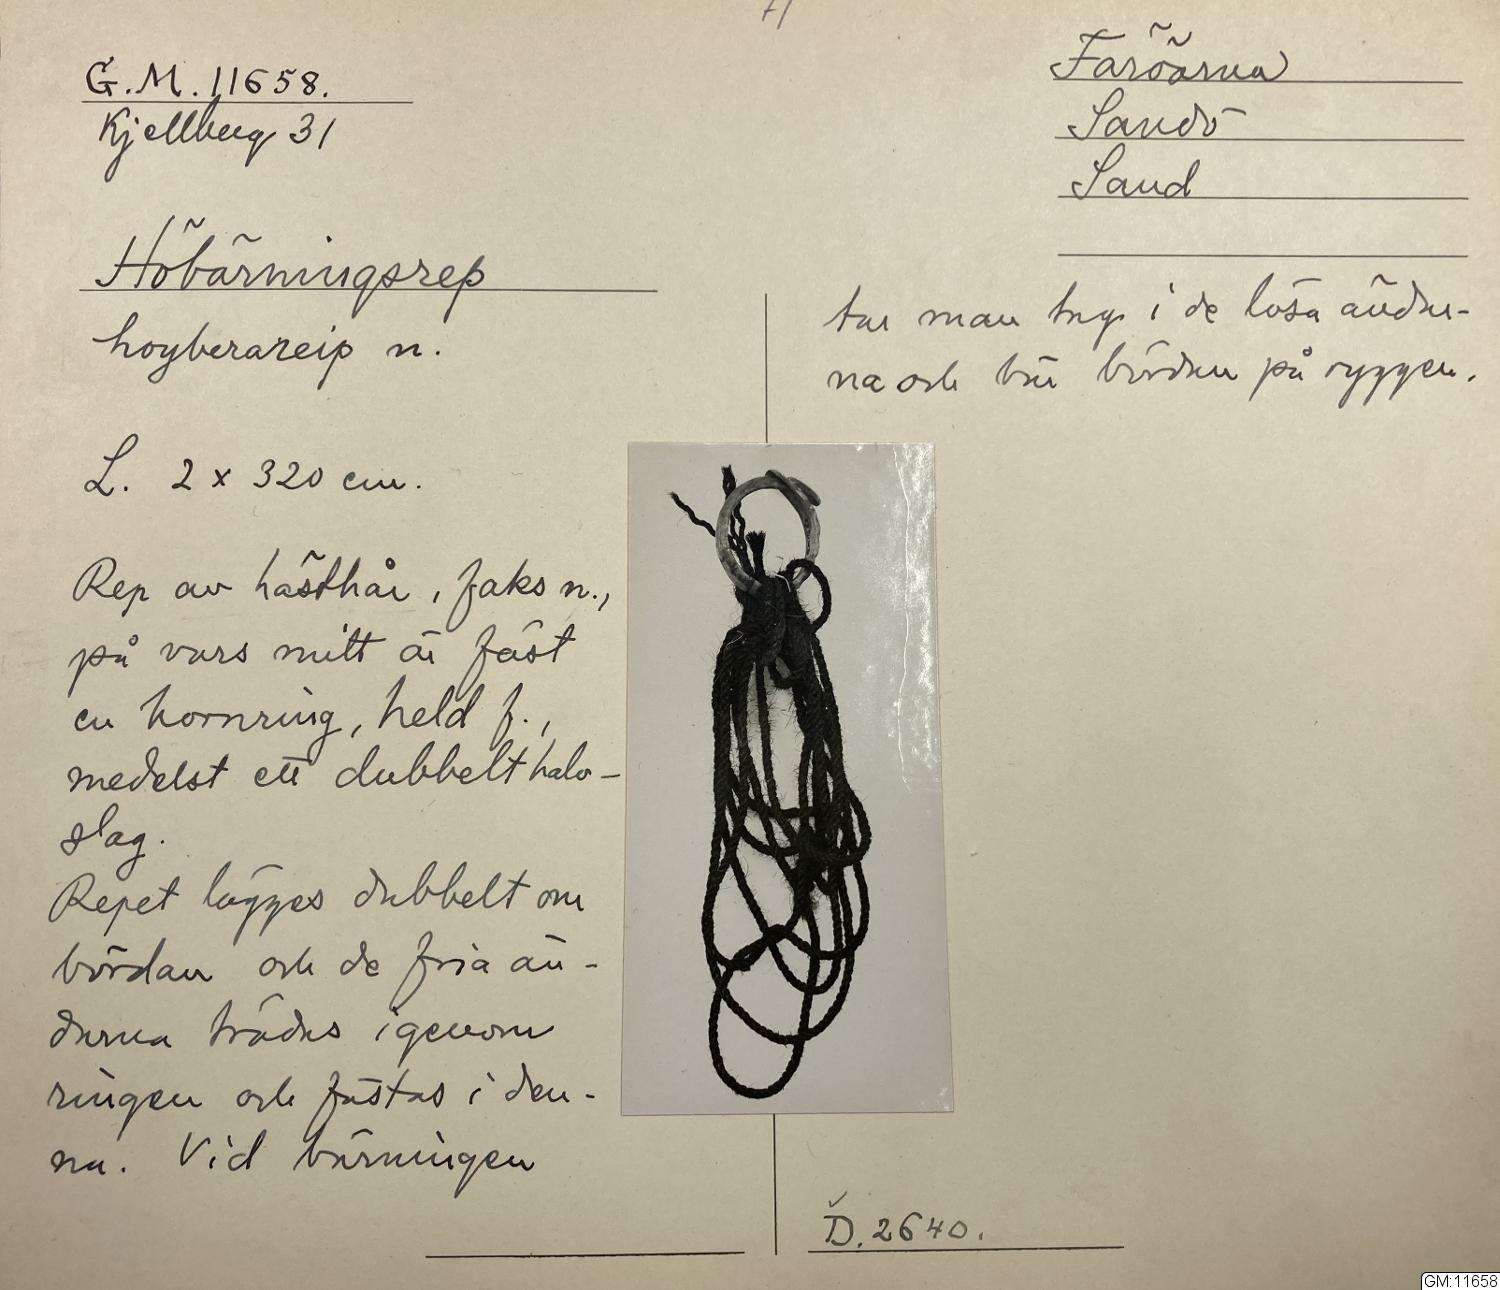 G.M. 11658.
Kjellberg 31
Färöarna
Sandö
Sand
Höbärningsrep
hoyberareip n.
L. 2 x 320 cm.
Rep av hästhår, faks n.,
på vars mitt är fäst
en hornring, held f.,
medelst ett dubbelt halv-
slag.
Repet lägges dubbelt om
bördan och de fria än-
darna trädes igenom
ringen och fästas i den-
na. Vid bärningen
tar man tag i de lösa ändar-
na och bär bördan på ryggen.
D. 2640.
GM:11658